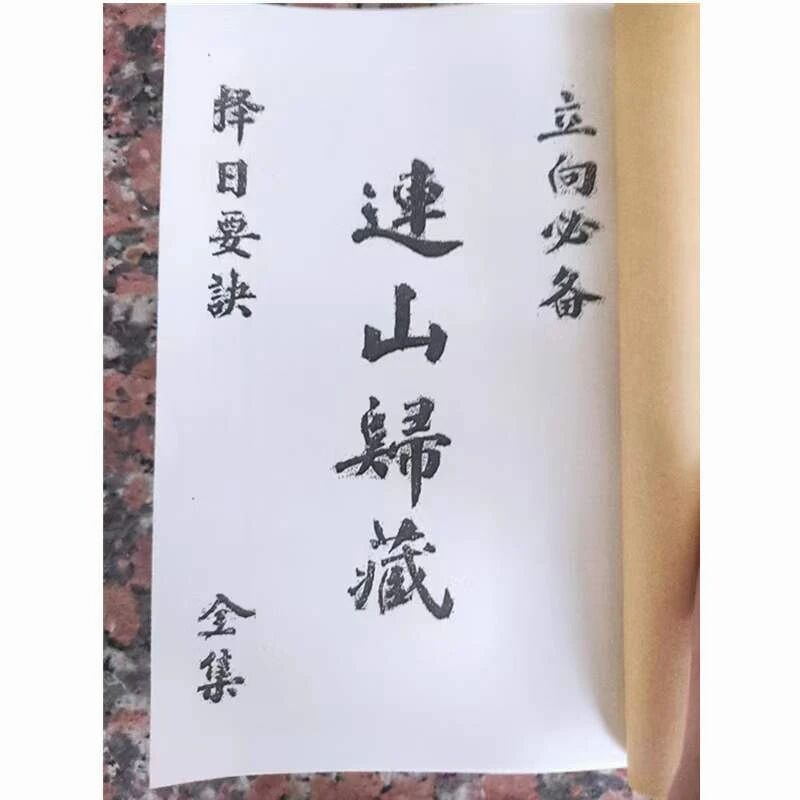 立向必备
連山歸藏
择日要訣
全集